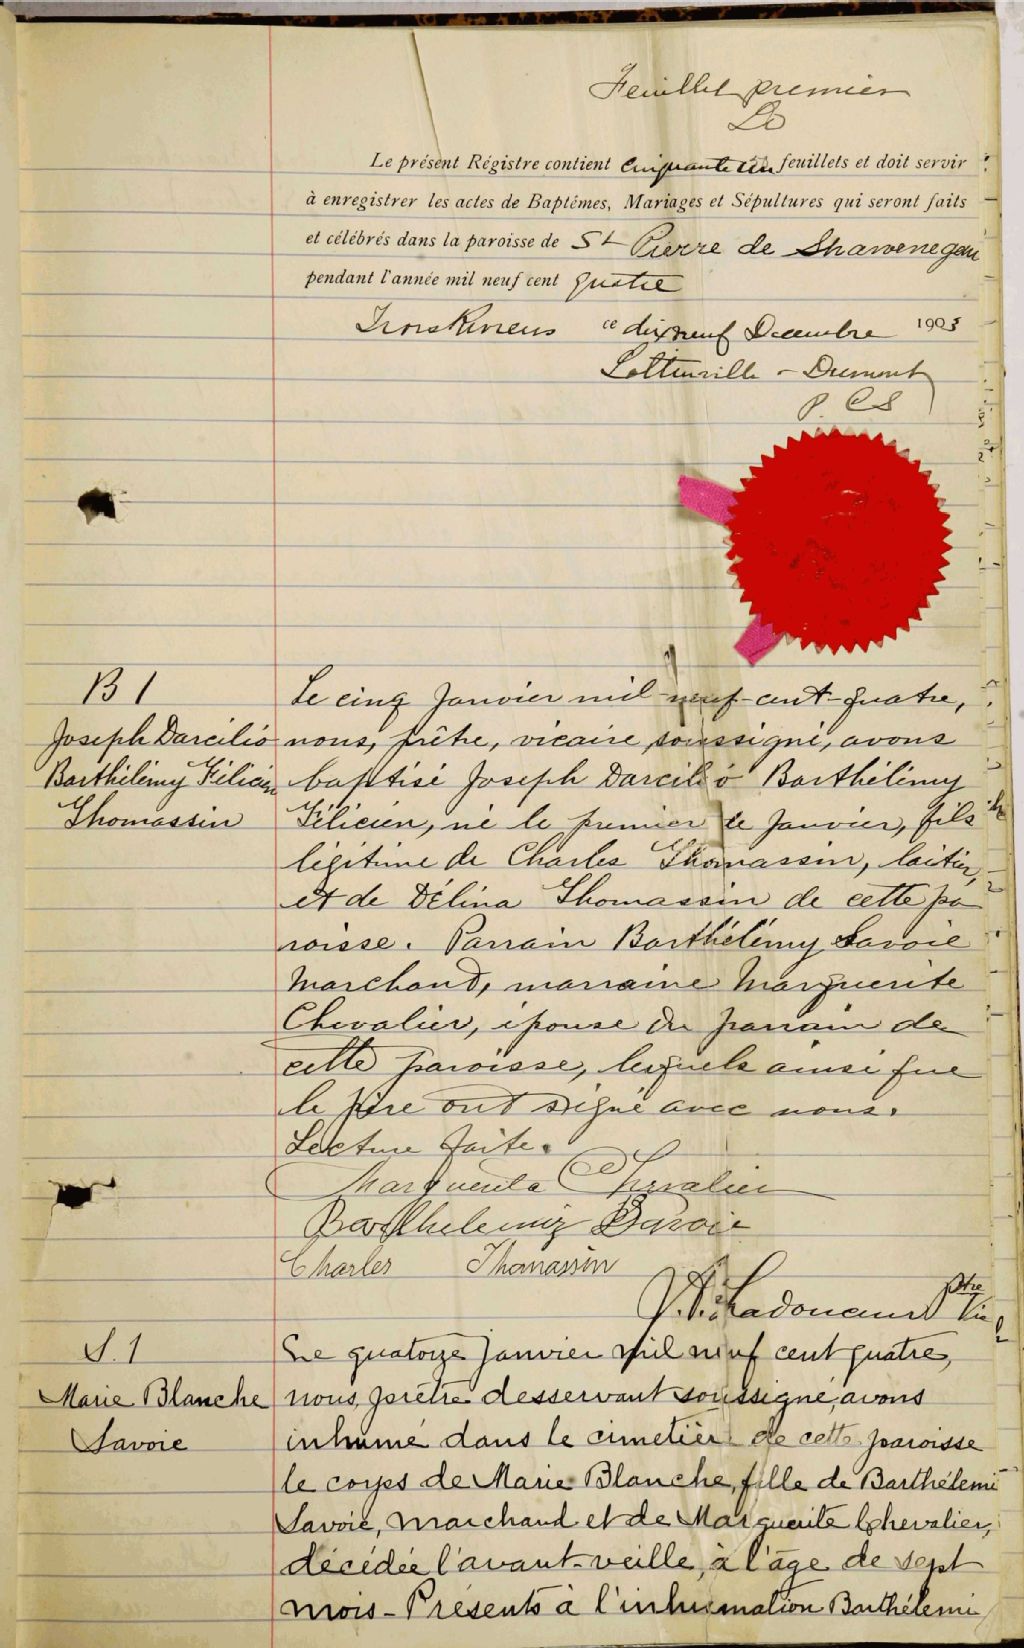 Feuillet premier
LD
Le présent Régistre contient cinquante un feuillets et doit servir
à enregistrer les actes de Baptêmes, Mariages et Sépultures qui seront faits
et célébrés dans la paroisse de St Pierre de Shawenegan
pendant l'année mil neuf cent quatre
Trois Rivieres ce dix neuf Decembre 1903
Lottinville - Dumont
P. C S
B 1
Joseph Darcilio
Barthélémy Félicien
Thomassin
Le cinq Janvier mil neuf-cent-quatre,
nous, prêtre, vicaire soussigné, avons
baptisé Joseph Darcilio Barthélémy
Félicien, né le premier de Janvier, fils
légitime de Charles Thomassin, laitier,
et de Délina Thomassin de cette pa
roisse. Parrain Barthélémy Savoie
Marchand, marraine Marguerite
Chevalier, épouse du parrain de
cette paroisse, lesquels ainsi que
le père ont signé avec nous.
Lecture faite.
Marguerite Chevalier
Barthelemiz Savoie
Charles Thomassin
Ladouceur Ptre Vic
S. 1
Marie Blanche
Savoie
Le quatorze janvier mil neuf cent quatre,
nous, prêtre desservant soussigné, avons
inhumé dans le cimetière de cette paroisse
le corps de Marie Blanche, fille de Barthélemi
Savoie, marchand et de Marguerite Chevalier,
décédée l'avant-veille, à l'âge de sept
mois - Présents à l'inhumation Barthélemi